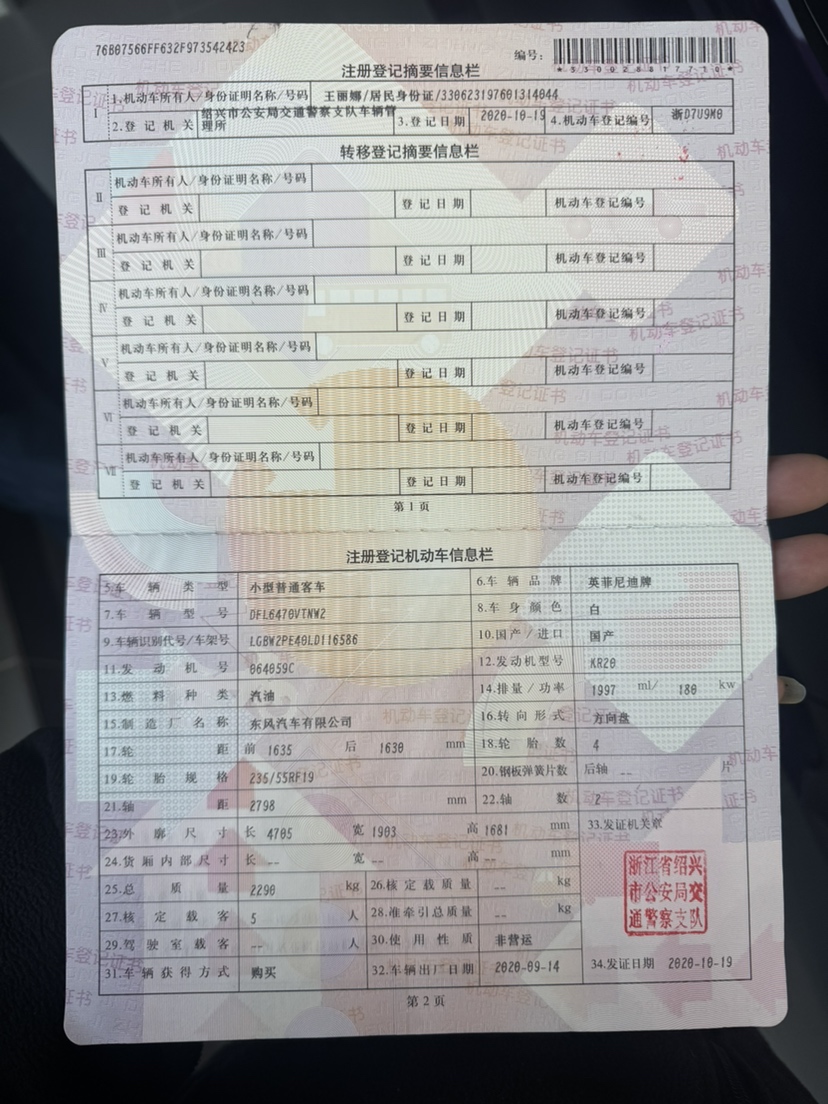 76B07566FF632F973542423
编号:
*530028817710*
注册登记摘要信息栏
I
1.机动车所有人/身份证明名称/号码 王丽娜/居民身份证/330623197601314044
2.登记机关 绍兴市公安局交通警察支队车辆管理所 3.登记日期 2020-10-19 4.机动车登记编号 浙D7U9M0
转移登记摘要信息栏
II 机动车所有人/身份证明名称/号码
登记机关 登记日期 机动车登记编号
III 机动车所有人/身份证明名称/号码
登记机关 登记日期 机动车登记编号
IV 机动车所有人/身份证明名称/号码
登记机关 登记日期 机动车登记编号
V 机动车所有人/身份证明名称/号码
登记机关 登记日期 机动车登记编号
VI 机动车所有人/身份证明名称/号码
登记机关 登记日期 机动车登记编号
VII 机动车所有人/身份证明名称/号码
登记机关 登记日期 机动车登记编号
第1页
注册登记机动车信息栏
5.车辆类型 小型普通客车 6.车辆品牌 英菲尼迪牌
7.车辆型号 DFL6470VTNW2 8.车身颜色 白
9.车辆识别代号/车架号 LGBW2PE40LD116586 10.国产/进口 国产
11.发动机号 064059C 12.发动机型号 KR20
13.燃料种类 汽油 14.排量/功率 1997 ml/ 180 kw
15.制造厂名称 东风汽车有限公司 16.转向形式 方向盘
17.轮距 前 1635 后 1630 mm 18.轮胎数 4
19.轮胎规格 235/55RF19 20.钢板弹簧片数 后轴 -- 片
21.轴距 2798 mm 22.轴数 2
23.外廓尺寸 长 4705 宽 1903 高 1681 mm 33.发证机关章
24.货厢内部尺寸 长 -- 宽 -- 高 -- mm
浙江省绍兴市公安局交通警察支队
25.总质量 2290 kg 26.核定载质量 -- kg
27.核定载客 5 人 28.准牵引总质量 -- kg
29.驾驶室载客 -- 人 30.使用性质 非营运
31.车辆获得方式 购买 32.车辆出厂日期 2020-09-14 34.发证日期 2020-10-19
第2页